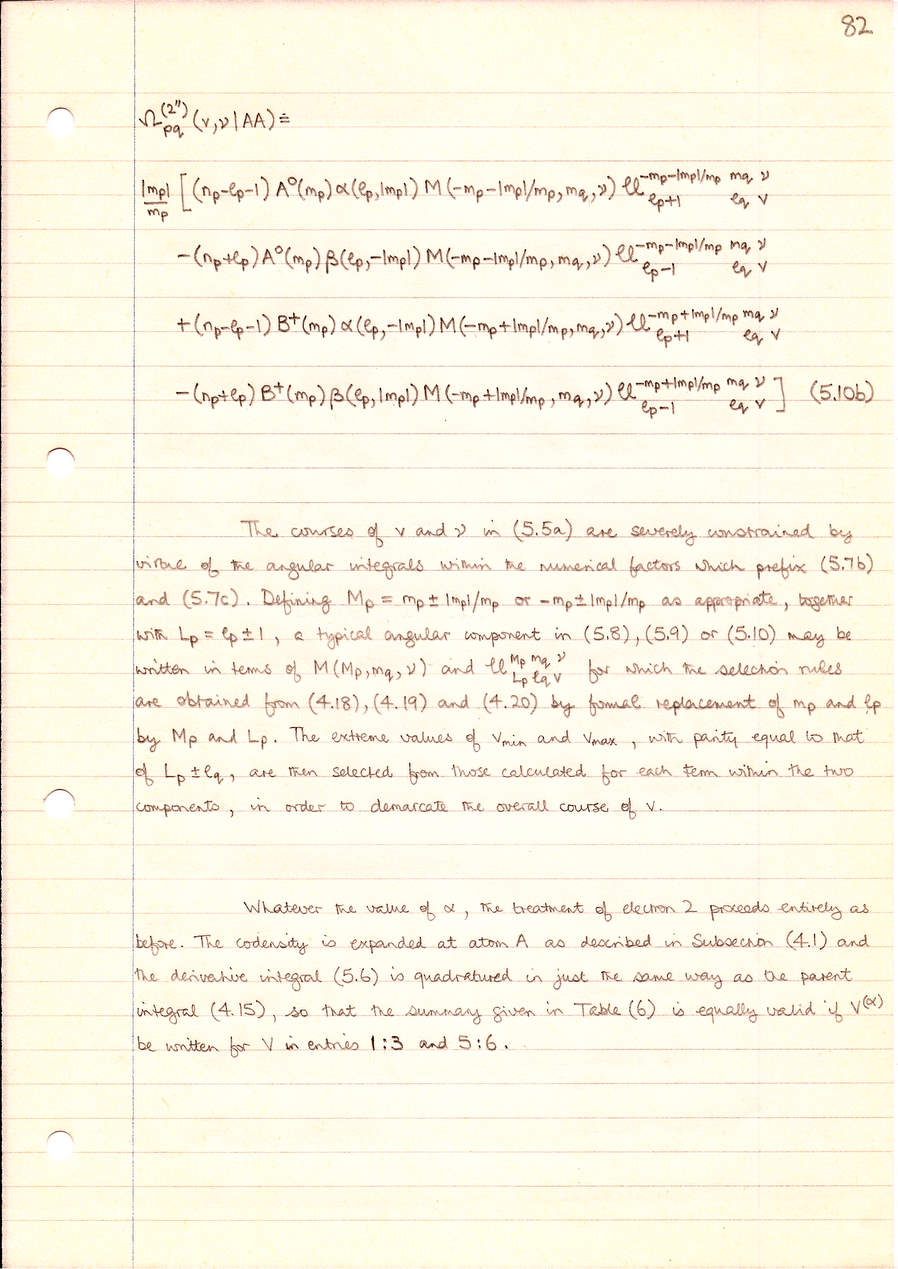 82
Ω_pq^(2″) (v,ν|AA) ≐
|mp|/mp [(np-ℓp-1) A°(mp) α(ℓp,|mp|) M(-mp-|mp|/mp, mq, ν) 𝓊^{-mp-|mp|/mp mq ν}_{ℓp+1 ℓq v}
-(np+ℓp) A°(mp) β(ℓp,-|mp|) M(-mp-|mp|/mp, mq, ν) 𝓊^{-mp-|mp|/mp mq ν}_{ℓp-1 ℓq v}
+(np-ℓp-1) B⁺(mp) α(ℓp,-|mp|) M(-mp+|mp|/mp, mq, ν) 𝓊^{-mp+|mp|/mp mq ν}_{ℓp+1 ℓq v}
-(np+ℓp) B⁺(mp) β(ℓp,|mp|) M(-mp+|mp|/mp, mq, ν) 𝓊^{-mp+|mp|/mp mq ν}_{ℓp-1 ℓq v}] (5.10b)
The courses of v and ν in (5.5a) are severely constrained by
virtue of the angular integrals within the numerical factors which prefix (5.7b)
and (5.7c). Defining Mp = mp ± |mp|/mp or -mp ± |mp|/mp as appropriate, together
with Lp = ℓp ± 1, a typical angular component in (5.8), (5.9) or (5.10) may be
written in terms of M(Mp, mq, ν) and 𝓊^{Mp mq ν}_{Lp ℓq v} for which the selection rules
are obtained from (4.18), (4.19) and (4.20) by formal replacement of mp and ℓp
by Mp and Lp. The extreme values of vmin and vmax, with parity equal to that
of Lp ± ℓq, are then selected from those calculated for each term within the two
components, in order to demarcate the overall course of v.
Whatever the value of α, the treatment of electron 2 proceeds entirely as
before. The codensity is expanded at atom A as described in Subsection (4.1) and
the derivative integral (5.6) is quadratured in just the same way as the parent
integral (4.15), so that the summary given in Table (6) is equally valid if V^(α)
be written for V in entries 1:3 and 5:6.